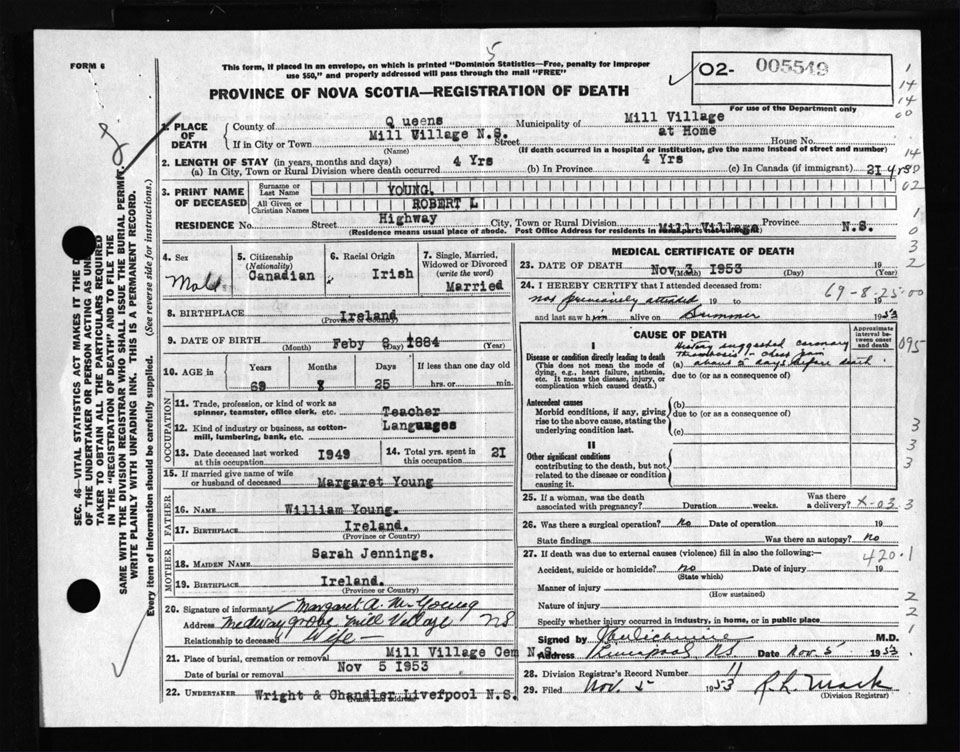 5
FORM 6
This form, if placed in an envelope, on which is printed "Dominion Statistics—Free, penalty for improper
use $50," and properly addressed will pass through the mail "FREE"
O2- 005549
PROVINCE OF NOVA SCOTIA—REGISTRATION OF DEATH
For use of the Department only
1. PLACE OF DEATH
County of Queens Municipality of Mill Village
If in City or Town Mill Village N.S. Street at Home House No.
(Name) (If death occurred in a hospital or institution, give the name instead of street and number)
2. LENGTH OF STAY (in years, months and days) 4 Yrs 4 Yrs 2I yrs
(a) In City, Town or Rural Division where death occurred (b) In Province (c) In Canada (if immigrant)
3. PRINT NAME OF DECEASED
Surname or Last Name YOUNG.
All Given or Christian Names ROBERT L
RESIDENCE No. Street Highway City, Town or Rural Division Mill Village Province N.S.
(Residence means usual place of abode. Post Office Address for residents in rural parts not sufficient)
4. Sex Male
5. Citizenship (Nationality) Canadian
6. Racial Origin Irish
7. Single, Married, Widowed or Divorced (write the word) Married
8. BIRTHPLACE Ireland
(Province or Country)
9. DATE OF BIRTH Feby 8 1884
(Month) (Day) (Year)
10. AGE in Years Months Days If less than one day old
69 8 25 hrs. or min.
OCCUPATION
11. Trade, profession, or kind of work as
spinner, teamster, office clerk, etc. Teacher
12. Kind of industry or business, as cotton-
mill, lumbering, bank, etc. Languages
13. Date deceased last worked at this occupation I949
14. Total yrs. spent in this occupation 2I
15. If married give name of wife
or husband of deceased Margaret Young
FATHER
16. Name William Young.
17. Birthplace Ireland.
(Province or Country)
MOTHER
18. Maiden Name Sarah Jennings.
19. Birthplace Ireland.
(Province or Country)
20. Signature of informant Margaret A. Young
Address Medway grove Mill Village NS
Relationship to deceased Wife
21. Place of burial, cremation or removal Mill Village Cem N.S.
Date of burial or removal Nov 5 I953
22. UNDERTAKER Wright & Chandler Liverpool N.S.
(Name and address)
MEDICAL CERTIFICATE OF DEATH
23. DATE OF DEATH Nov 3 I953 19
(Month) (Day) (Year)
24. I HEREBY CERTIFY that I attended deceased from:
not previously attended 19 to 19
69-8-25-00
and last saw him alive on Summer 1953
CAUSE OF DEATH
Approximate interval between onset and death
I
Disease or condition directly leading to death
(This does not mean the mode of
dying, e.g., heart failure, asthenia,
etc. It means the disease, injury, or
complication which caused death.)
History suggested coronary
thrombosis - chest pain
(a) about 5 days before death
due to (or as a consequence of)
Antecedent causes
Morbid conditions, if any, giving
rise to the above cause, stating the
underlying condition last.
(b)
due to (or as a consequence of)
(c)
II
Other significant conditions
contributing to the death, but not
related to the disease or condition
causing it.
25. If a woman, was the death
associated with pregnancy? Duration weeks. Was there a delivery? X-03
26. Was there a surgical operation? No Date of operation 19
State findings Was there an autopsy? No
27. If death was due to external causes (violence) fill in also the following:—
420.1
Accident, suicide or homicide? No Date of injury 19
(State which)
Manner of injury
(How sustained)
Nature of injury
Specify whether injury occurred in industry, in home, or in public place
Signed by M.D.
Address Liverpool NS Date Nov. 5 1953
28. Division Registrar's Record Number 11
29. Filed Nov. 5 1953 R. L. Mack
(Division Registrar)
SEC. 46—VITAL STATISTICS ACT MAKES IT THE
OF THE UNDERTAKER OR PERSON ACTING AS
TAKER TO OBTAIN ALL THE PARTICULARS REQUIRED
IN THE "REGISTRATION OF DEATH" AND TO FILE THE
SAME WITH THE DIVISION REGISTRAR WHO SHALL ISSUE THE BURIAL PERMIT.
WRITE PLAINLY WITH UNFADING INK. THIS IS A PERMANENT RECORD.
Every item of information should be carefully supplied. (See reverse side for instructions.)
1
14
14
00
14
02
1
0
3
2
095
3
3
3
3
2
2
1